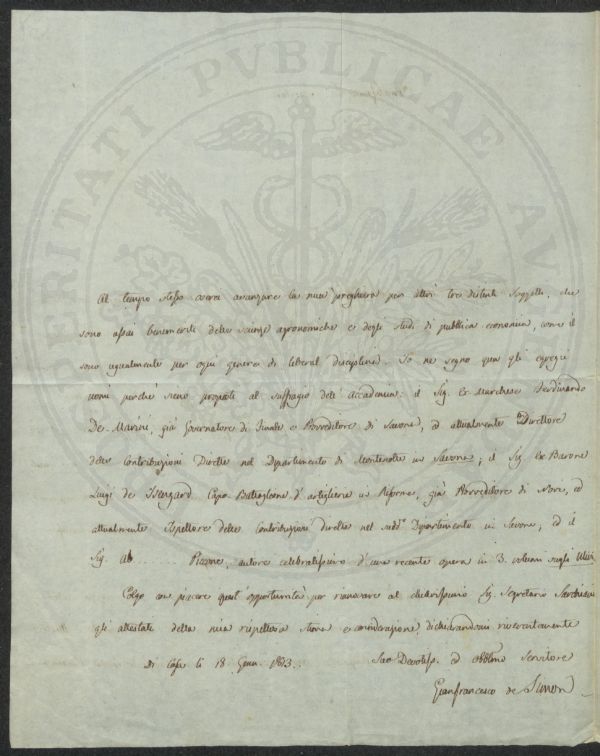 PROSPERITATI PVBLICAE AVGENDAE
Al tempo stesso avrei avanzare la mia preghiera per altri tre distinti Soggetti, che
sono assai benemeriti delle scienze agronomiche e degli studi di pubblica economia, come il
sono ugualmente per ogni genere di liberal disciplina. Io ne segno qua gli egregi
nomi perchè sieno proposti al suffragio dell'Accademia: il Sig. Ex-Marchese Ferdinando
De-Marini, già Governatore di Finale e Provveditore di Savona, ed attualmente Direttore
delle Contribuzioni Dirette nel Dipartimento di Montenotte in Savona; il Sig. Ex Barone
Luigi de Isengard Capo Battaglione d'artiglieria in Riforma, già Provveditore di Novi, ed
attualmente Ispettore delle Contribuzioni dirette nel sudd.o Dipartimento in Savona; ed il
Sig. Ab. ..... Picconi, autore celebratissimo d'una recente opera in 3. volumi sugli Ulivi.
Colgo con piacere quest'opportunità per rinnovare al chiarissimo Sig. Segretario
gli attestati della mia rispettosa stima e considerazione, dichiarandomi riverentemente
Di Casa li 18 Genn. 1813.
Suo Devotiss. ed Obblmo Servitore
Gianfrancesco de Simoni